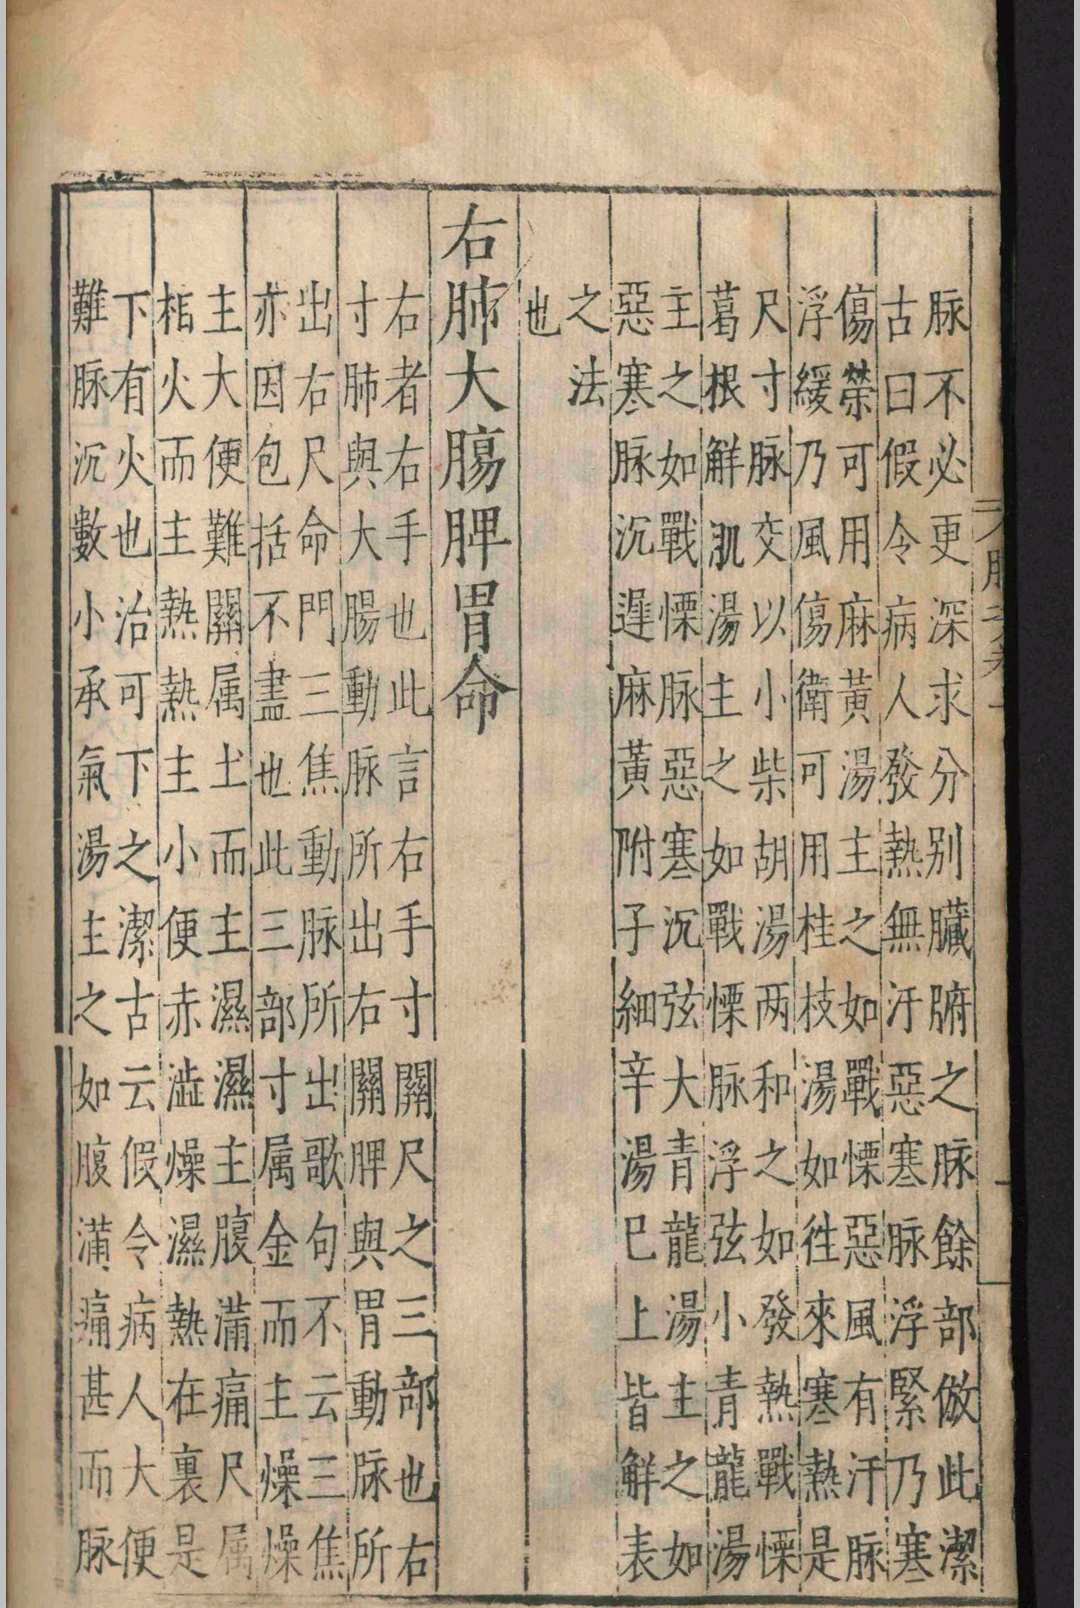 脉不必更深求分别臟腑之脉餘部倣此潔
古曰假令病人發熱無汗惡寒脉浮緊乃寒
傷榮可用麻黃湯主之如戰慄惡風有汗脉
浮緩乃風傷衛可用桂枝湯如徃來寒熱是
尺寸脉交以小柴胡湯两和之如發熱戰慄
葛根解肌湯主之如戰慄脉浮弦小青龍湯
主之如戰慄脉惡寒沉弦大青龍湯主之如
惡寒脉沉遲麻黃附子細辛湯巳上皆解表
之法
也
右肺大腸脾胃命
右者右手也此言右手寸關尺之三部也右
寸肺與大腸動脉所出右關脾與胃動脉所
出右尺命門三焦動脉所出歌句不云三焦
亦因包括不盡也此三部寸属金而主燥燥
主大便難關属土而主濕濕主腹滿痛尺属
相火而主熱熱主小便赤澁燥濕熱在裏是
下有火也治可下之潔古云假令病人大便
難脉沉數小承氣湯主之如腹滿痛甚而脉